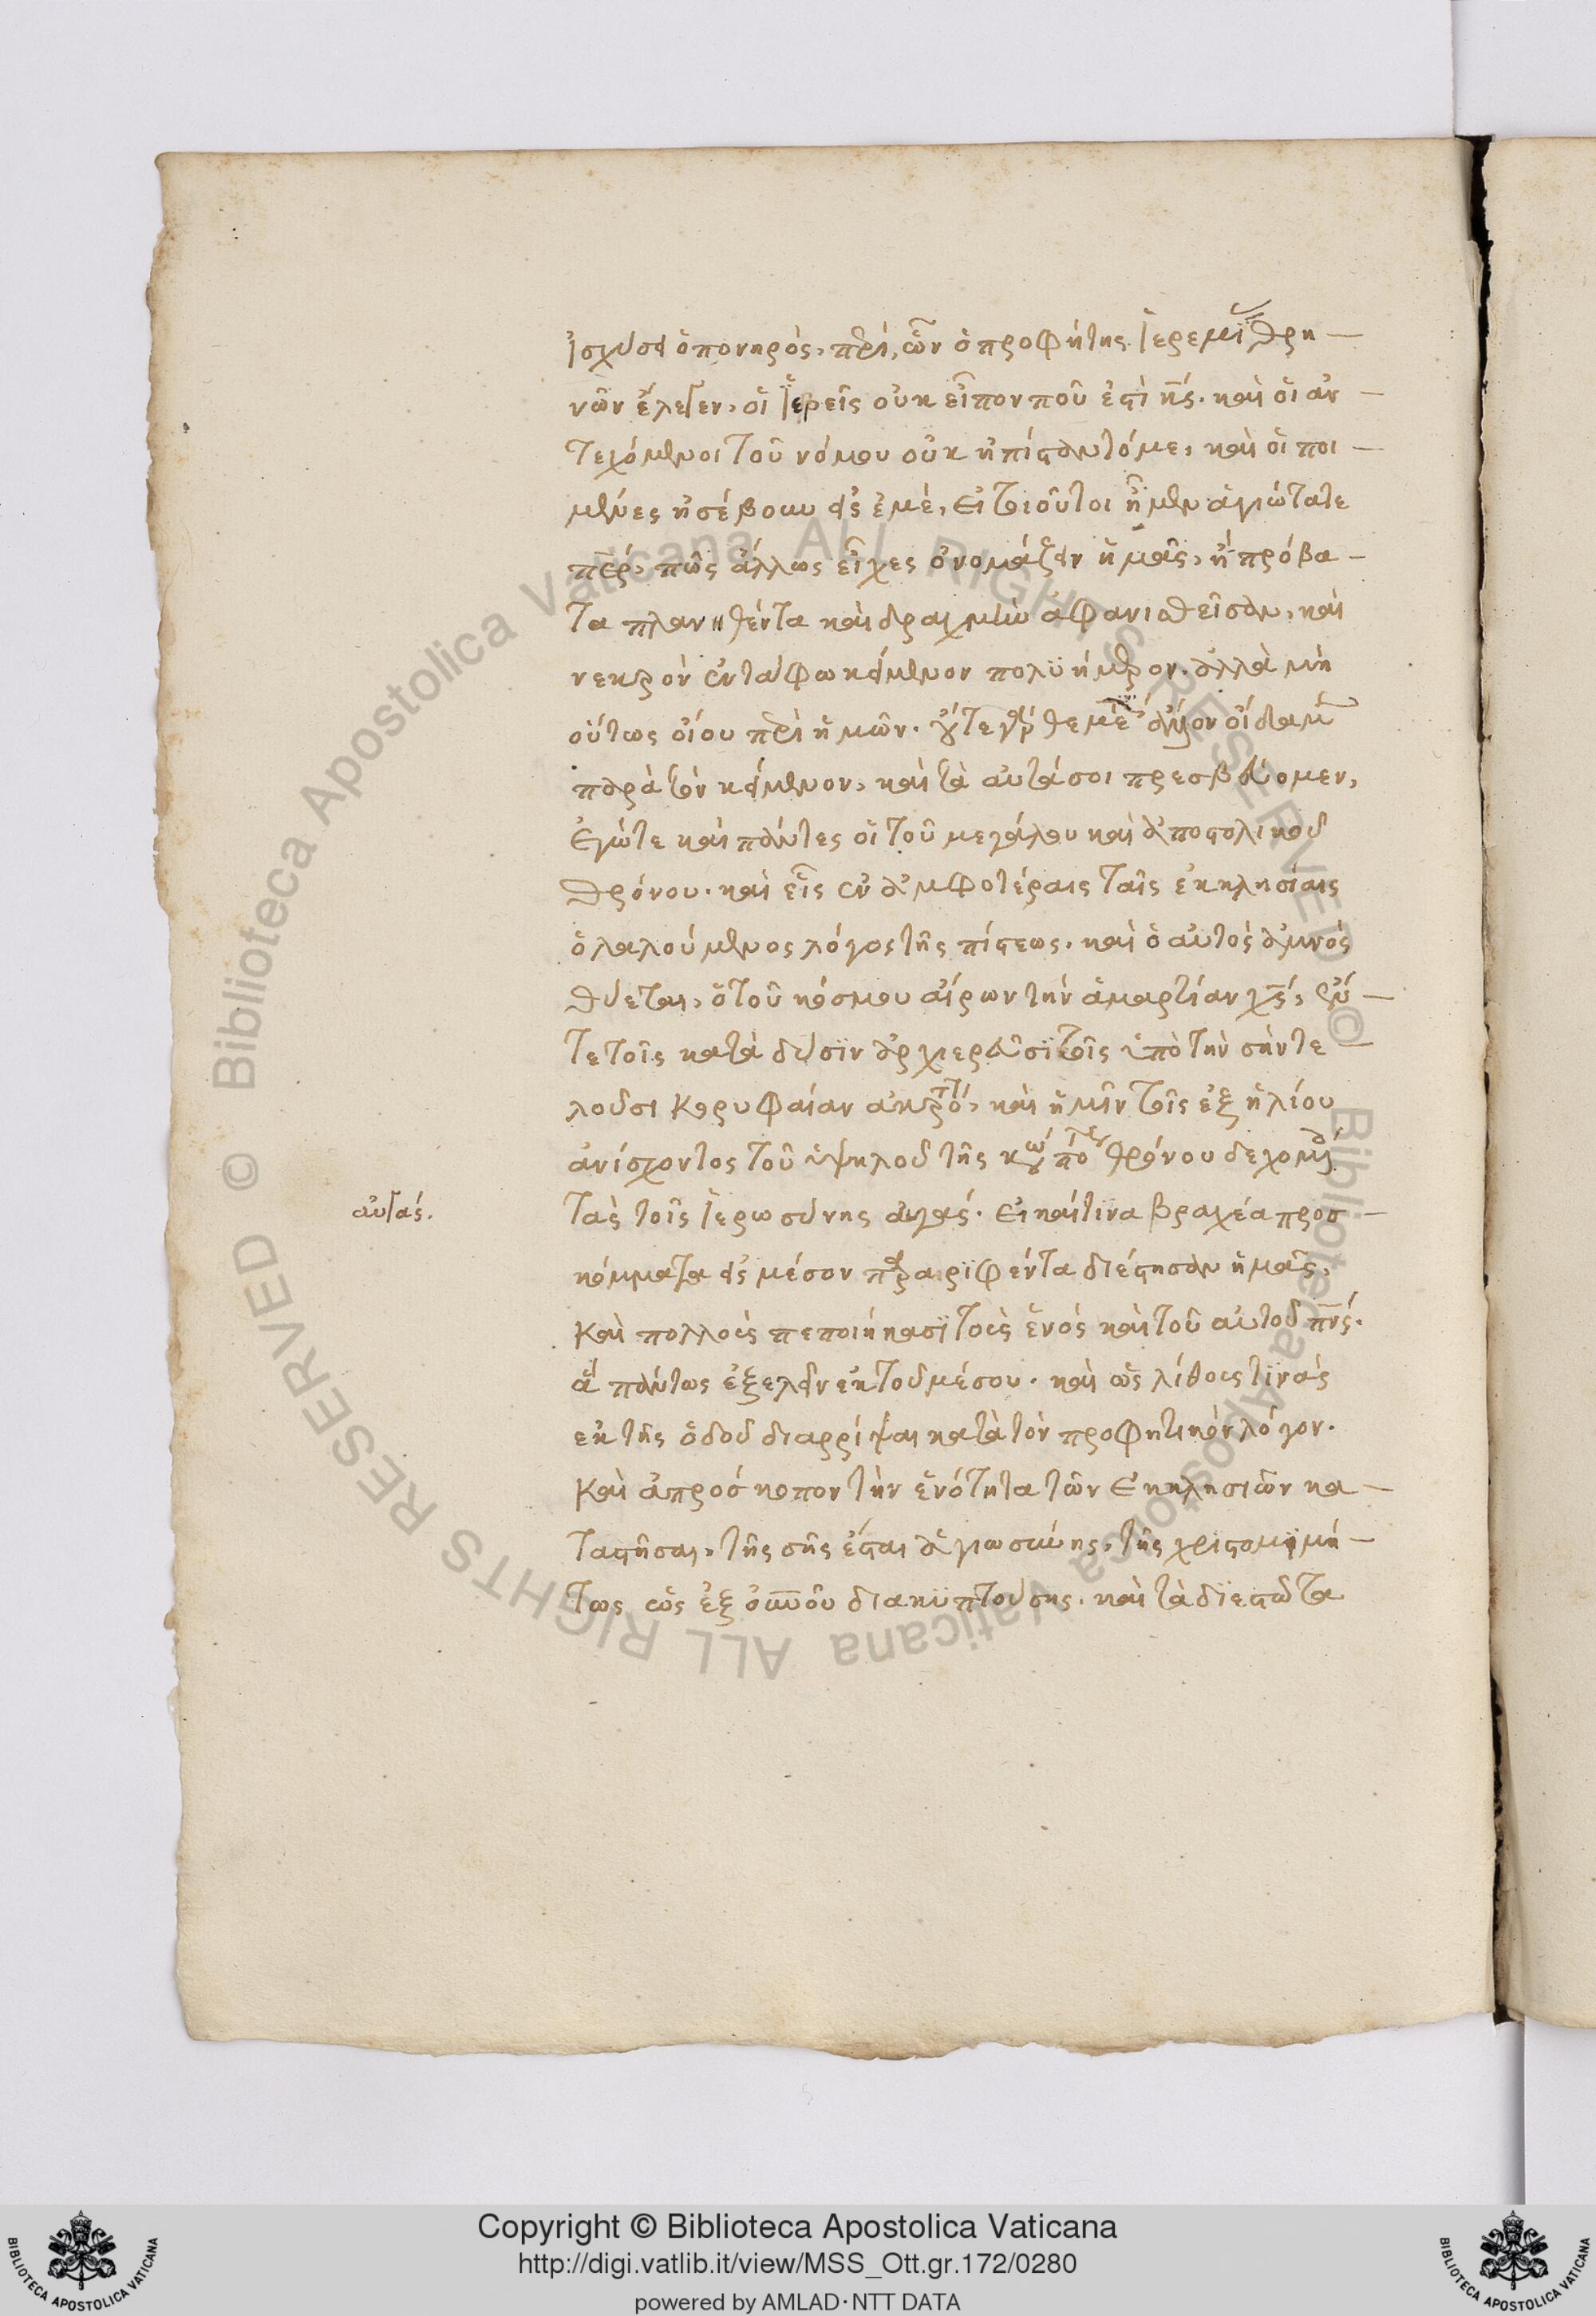 ἰσχύσει ὁ πονηρὸς, περὶ ὧν ὁ προφήτης Ἱερεμί θρη —
νῶν ἔλεγεν, οἱ ἱερεῖς οὐκ εἶπον ποῦ ἐστὶ κς. καὶ οἱ ἀν —
τεχόμενοι τοῦ νόμου οὐκ ἠπίσταντό με, καὶ οἱ ποι —
μένες ἠσέβουν εἰς ἐμέ, εἰ τοιοῦτοι ἦμεν ἁγιώτατε
περ, πῶς ἄλλως εἶχες ὀνομάζειν ἡμᾶς, ἢ πρόβα —
τα πλανηθέντα καὶ δραχμὴν ἀφανισθεῖσαν, καὶ
νεκρὸν ἐν τάφω κείμενον πολυήμερον. ἀλλὰ μὴ
οὕτως οἴου περὶ ἡμῶν.
παρὰ τὸν κείμενον, καὶ τὰ αὐτά σοι πρεσβεύομεν,
ἐγώ τε καὶ πάντες οἱ τοῦ μεγάλου καὶ ἀποστολικοῦ
θρόνου. καὶ εἷς ἐν ἀμφοτέραις ταῖς ἐκκλησίαις
ὁ λαλούμενος λόγος τῆς πίστεως. καὶ ὁ αὐτὸς ἀμνὸς
θύεται, ὁ τοῦ κόσμου αἴρων τὴν ἁμαρτίαν χς, ἔν —
τε τοῖς κατὰ δύσιν ἀρχιερεῦσι τοῖς ὑπὸ τὴν σὴν τε —
λοῦσι κορυφαίαν ἀκρότ, καὶ ἡμῖν τοῖς ἐξ ἡλίου
ἀνίσχοντος τοῦ ὑψηλοῦ τῆς κων πο θρόνου δεχομ
τὰς τοῖς ἱερωσύνης αὐγάς. εἰ καί τινα βραχέα προσ —
αὐγάς.
κόμματα εἰς μέσον παραριφέντα διέστησαν ἡμᾶς,
καὶ πολλοὺς πεποιήκασι τοὺς ἑνὸς καὶ τοῦ αὐτοῦ πνς.
ἃ πάντως ἐξελεῖν ἐκ τοῦ μέσου. καὶ ὡς λίθους τινὰς
ἐκ τῆς ὁδοῦ διαρρίψαι κατὰ τὸν προφητικὸν λόγον.
καὶ ἀπρόσκοπον τὴν ἑνότητα τῶν ἐκκλησιῶν κα —
ταστῆσαι, τῆς σῆς ἔσται ἁγιωσύνης, τῆς χριστομιμή —
τως ὡς ἐξ οὐνοῦ διακυπτούσης. καὶ τὰ διεστῶτα
Copyright © Biblioteca Apostolica Vaticana
http://digi.vatlib.it/view/MSS_Ott.gr.172/0280
powered by AMLAD·NTT DATA